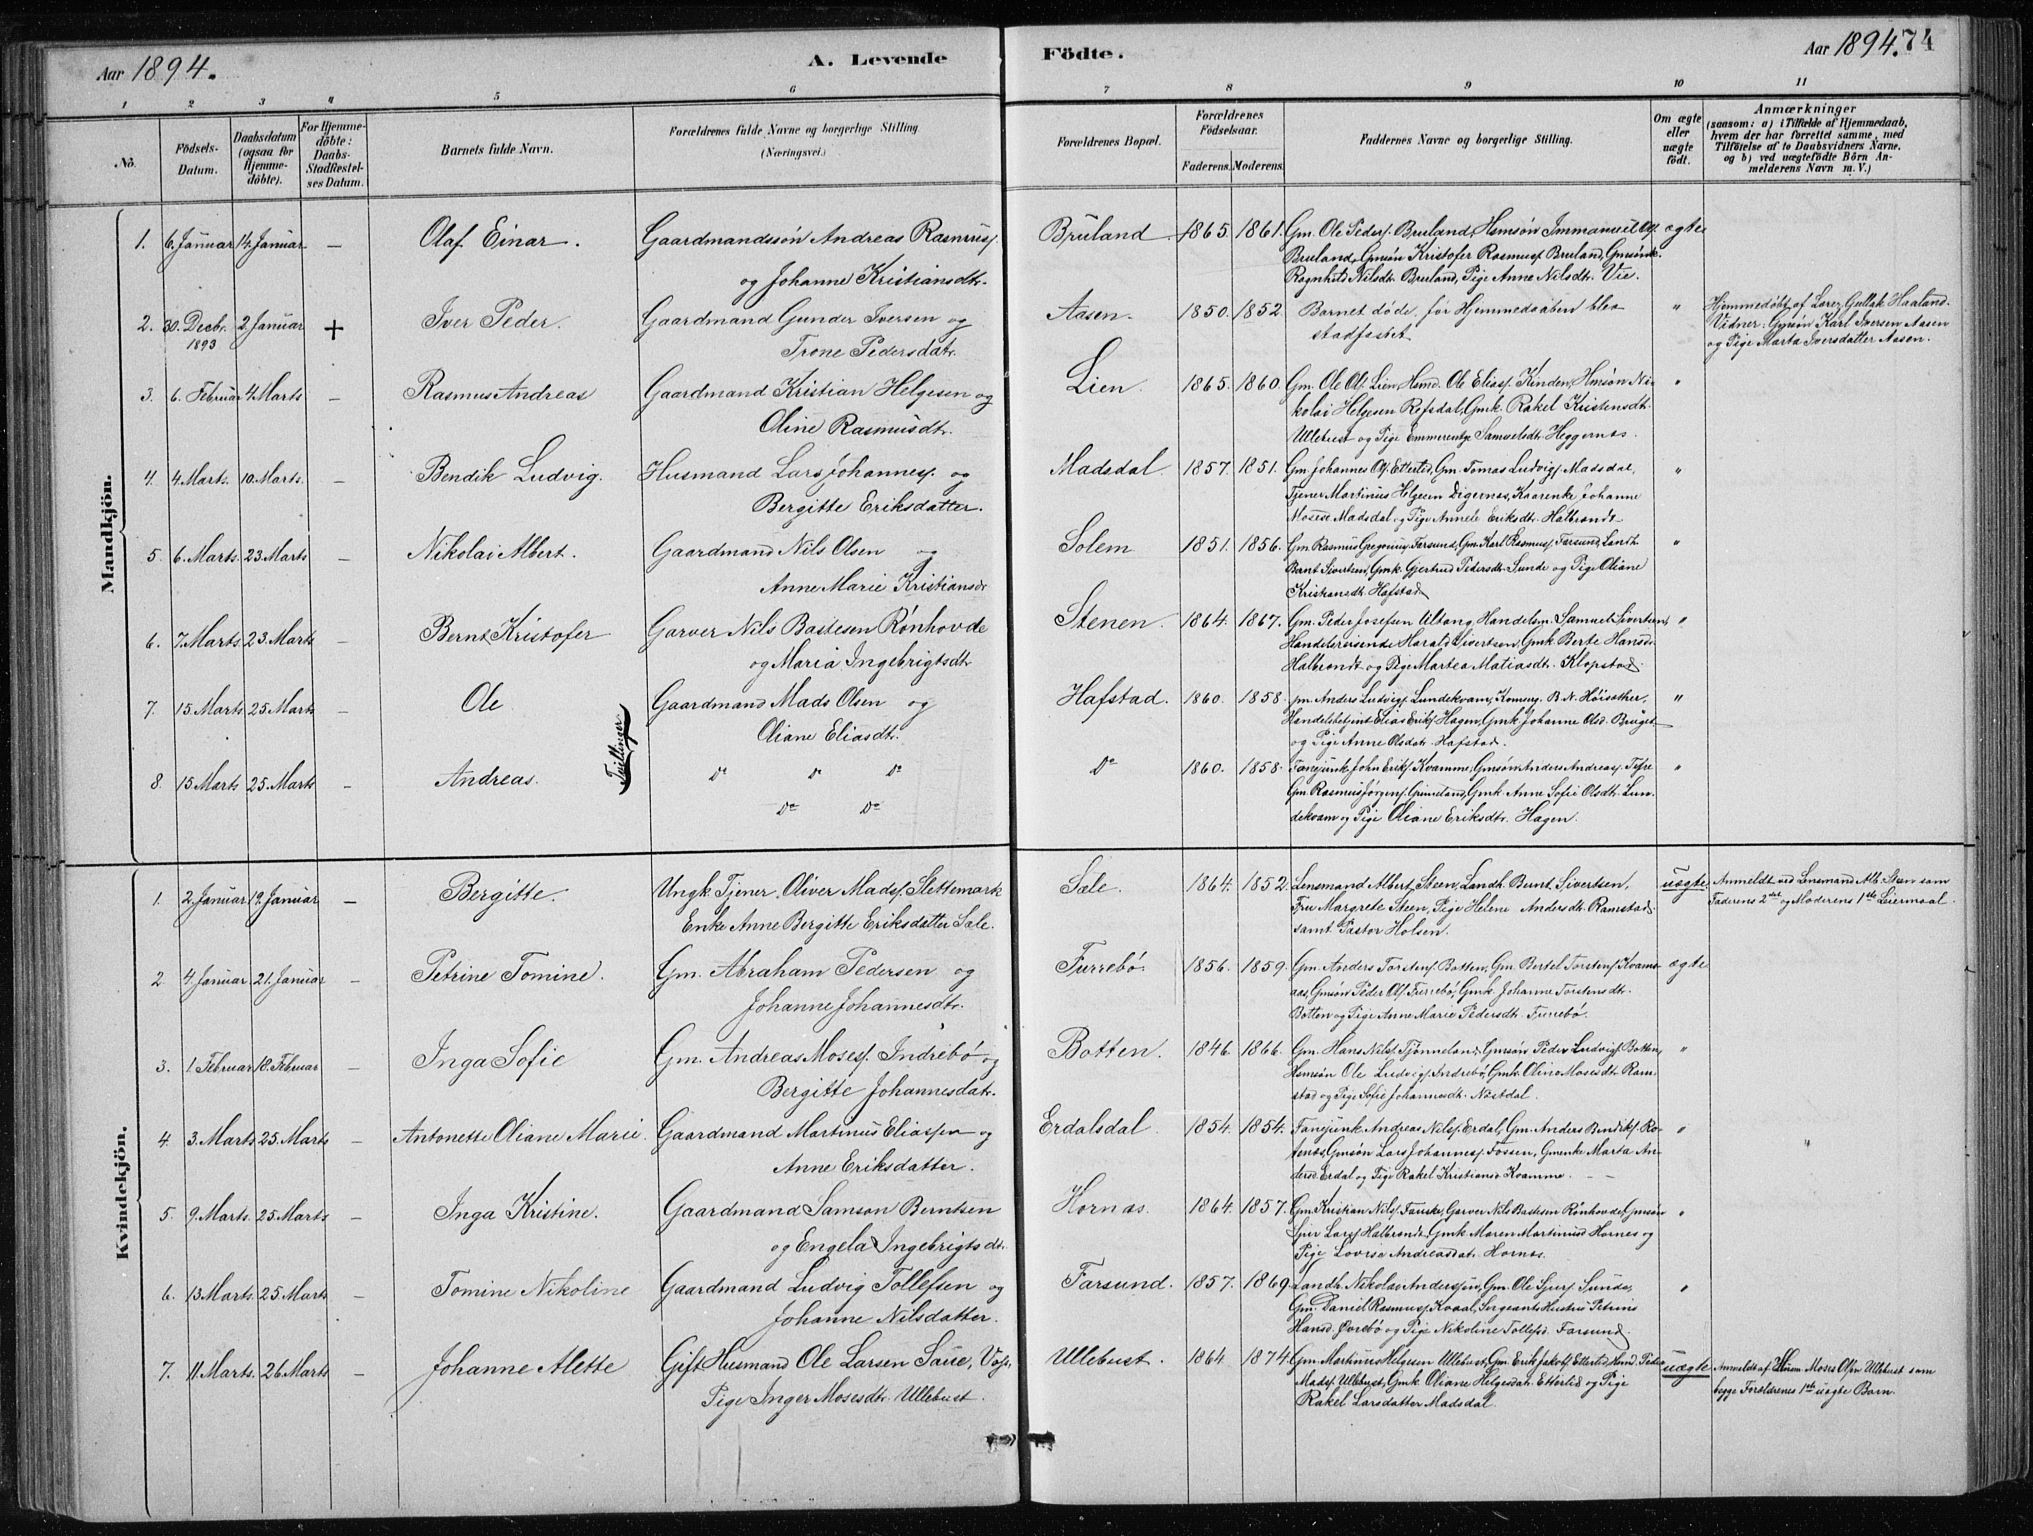 Aar 1894.
A. Levende
Födte.
Aar 1894. 74
1 2 3 4 5 6 7 8 9 10 11
No.
Födsels-Datum.
Daabsdatum (ogsaa for Hjemme-döbte).
For Hjemme-döbte: Daabs-Stadfæstel-ses Datum.
Barnets fulde Navn.
Forældrenes fulde Navne og borgerlige Stilling. (Næringsvei.)
Forældrenes Bopæl.
Forældrenes Födselsaar.
Faderens. Moderens.
Faddernes Navne og borgerlige Stilling.
Om ægte eller uægte födt.
Anmærkninger
(saasom: a) i Tilfælde af Hjemmedaab, hvem der har forrettet samme, med Tilföielse af to Daabsvidners Navne, og b) ved uægtefödte Börn An-melderens Navn m. V.)
Mandkjön.
1. 6. Januar 14. Januar — Olaf Einar. Gaardmandssön Andreas Rasmusf. Bruland. 1865. 1861. Gm. Ole Pedersf. Bruland, Hmsön Immanuel Olsf. ægte
og Johanne Kristiansdtr. Bruland, Gmsön Kristofer Rasmusf Bruland, Gmsönk.
Ragnhild Nilsdt. Bruland, Pige Anne Nilsdt. Vie.
2. 30. Decbr. 1893 2. Januar + Iver Peder. Gaardmand Gunder Iversen og Aasen. 1850. 1852 Barnet döde, för Hjemmedaaben blev " Hjemmedöbt af Lærer Gullak Haaland.
Trone Pedersdatr. stadfæstet. Vidner: Gmsön Karl Iversen Aasen
og Pige Marta Iversdatter Aasen.
3. 6. Februar 4 Marts — Rasmus Andreas Gaardmand Kristian Helgesen og Lien 1865. 1860. Gm. Ole Olsf. Lien, Hsmd. Ole Eliasf. Kinden, Hmsön Ni- "
Oline Rasmusdtr. kolai Helgesen Refsdal, Gmk. Rakel Kristensdt.
Ullebust og Pige Emmerentze Samuelsdt. Heggernæs.
4. 4 Marts. 10. Marts. — Bendik Ludvig. Husmand Lars Johannesf. og Madsdal 1857. 1851. Gm. Johannes Olsf Etterlid, Gm. Tomas Ludvigf. Madsdal, "
Bergitte Eriksdatter. Tjener Martinus Helgesen Digernæs, Kaarenke Johanne
Mosesd. Madsdal og Pige Eriksdt. Halbrændt
5. 6. Marts. 23 Marts — Nikolai Albert. Gaardmand Nils Olsen og Solem 1851. 1856. Gm. Rasmus Farsund, Gm. Karl Rasmusf. Farsund, Landh. "
Anne Marie Kristiansdr Bent Sivertsen, Gmk. Gjertrud Pedersdt. Sunde og Pige Oliane
Kristiansdt. Hafstad
6. 7. Marts. 23. Marts — Bernt Kristofer Garver Nils Bastesen Rønhovde Stenen. 1864. 1867. Gm. Peder Josefsen Handelsm. Samuel Sivertsen, "
og Maria Ingebrigtsdt. Handelsreisende Harald Sivertsen, Gmk. Berte Hansd.
Halbrendt og Pige Martea Matiasdt. Klopstad.
7. 15. Marts. 25. Marts — Ole Gaardmand Mads Olsen og Hafstad. 1860. 1858. Gm. Anders Ludvigf. Lundekvam, B. N. "
Oliane Eliasdt. Handelsbetjent Elias Eriksf. Hagen, Gmk Johanne Olsd. Bruget
og Pige Anne Olsdatr. Hafstad.
Tvillinger
8. 15. Marts 25. Marts — Andreas. Do Do Do Do 1860. 1858. Fanejunk. John Eriksf. Kvamme, Gmsön Anders Andreasf. Tefre "
Do Do Gm Rasmus Jörgens. Grimeland, Gmk. Anne Sofie Olsdt. Lun-
dekvam og Pige Oliane Eriksdtr. Hagen.
Kvindekjön.
1. 2. Januar 19. Januar — Bergitte. Ungk. Tjener Oliver Madsf. Slettemark Sæle. 1864. 1852. Lensmand Albert Steen, Landh. Bent Sivertsen, uægte Anmeldt ved Lensmand Alb. Steen som
Enke Anne Bergitte Eriksdatter Sæle. Fru Margrete Steen, Pige Helene Andersdt. Ramstad, Faderens 2det og Moderens 1ste Leiermaal.
samt Pastor Holsen.
2 4. Januar 21. Januar — Petrine Tomine. Gm. Abraham Pedersen og Furrebö. 1856. 1859. Gm. Anders Torstensf. Botten, Gm. Bertel Torstensf. Kvamme- ægte
Johanne Johannesdtr. aas, Gmsön Peder Olsf. Furrebö, Gmk. Johanne Torstensdt.
Botten og Pige Anne Marie Pedersdt. Furrebö.
3. 1. Februar 18. Februar — Inga Sofie Gm. Andreas Mosesf. Indrebö og Botten. 1846. 1866. Gm. Hans Nilsf. Tjönneland, Gmsön Peder Ludvigf. Botten, "
Bergitte Johannesdatr. Hsmsön Ole Ludvigf. Indrebö, Gmk Oline Mosesdt. Ram-
stad og Pige Sofie Johannesdt. Nöstdal.
4. 3. Marts. 25. Marts — Antonette Oliane Marie. Gaardmand Martinus Eliassen og Erdalsdal. 1854. 1854. Fanejunk. Andreas Nilsf. Erdal, Gm. Anders Bendiksf. Ro- "
Anne Eriksdatter. tenæs, Gmsön Lars Johannesf. Fossen, Gmenke Marta An-
dersd. Erdal og Pige Rakel Kristiansd. Kvamme.
5. 9. Marts. 25. Marts — Inga Kristine. Gaardmand Samson Berntsen Hornæs. 1864. 1857. Gm. Kristian Nilsf. Fauske, Garver Nils Bastesen Rønhovde, Gmsön "
og Engela Ingebrigtsdt. Larsf Halbrendt, Gmk. Maren Martinusd. Hornes og
Pige Lovise Andreasdat. Hornæs.
6. 13. Marts. 25. Marts — Tomine Nikoline Gaardmand Ludvig Tollefsen og Farsund. 1857. 1869. Landh. Nikolai Anderssen, Gm. Ole Sjursf. Sunde, "
Johanne Nilsdatter. Gm. Daniel Rasmusf. Kvaal, Sergeants Hustru Petrine
Hansd. Øvrebö og Pige Nikoline Tollefsd. Farsund.
7. 11. Marts. 26. Marts — Johanne Alette Gift Husmand Ole Larsen Saue, Vos, Ullebust. 1864. 1874. Gm. Martinus Helgesen Ullebust, Gm. Erik Jakobf. Etterlid, Peder uægte Anmeldt af Husm. Moses Olsen Ullebust som
Pige Inger Mosesdt. Ullebust. Madsf. Ullebust, Gmk. Oliane Helgesdat. Etterlid og Pige begge Forældrenes 1ste uægte Barn.
Rakel Larsdatter Madsdal.